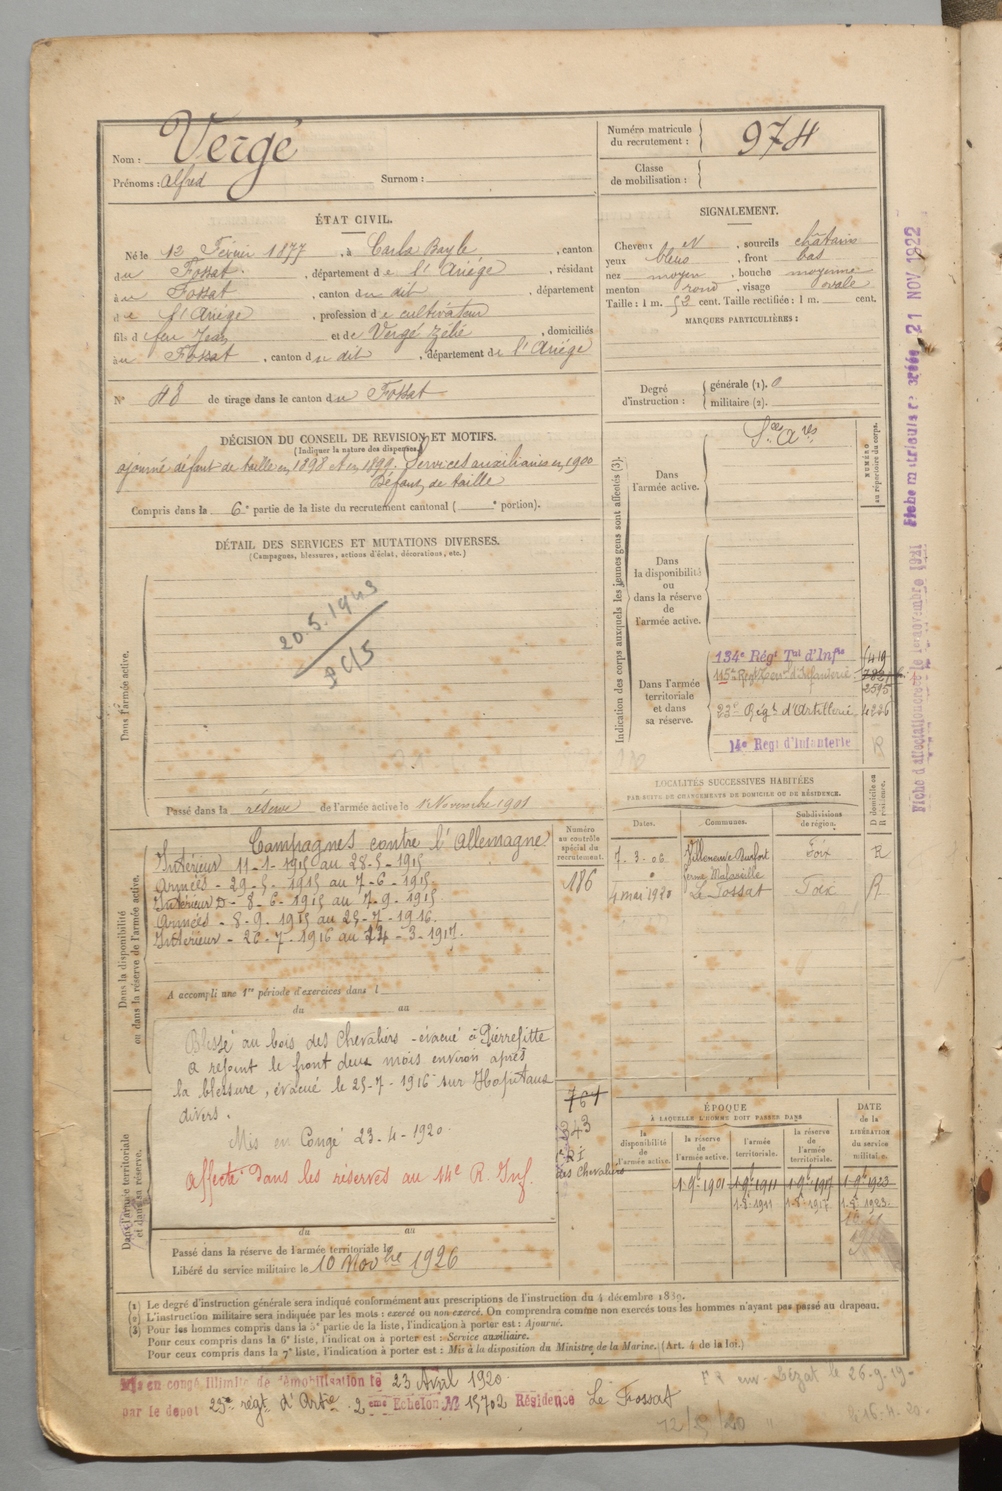 Nom : Vergé
Prénoms : Alfred Surnom :
Numéro matricule
du recrutement : 974
Classe
de mobilisation :
ÉTAT CIVIL.
Né le 12 Février 1877, à Carla Bayle, canton
du Fossat, département de l'Ariège, résidant
au Fossat, canton du dit, département
de l'Ariège, profession de cultivateur
fils d feu Jean et de Vergé Zélie, domiciliés
au Fossat, canton du dit, département de l'Ariège
N° 48 de tirage dans le canton du Fossat
DÉCISION DU CONSEIL DE REVISION ET MOTIFS.
(Indiquer la nature des dispenses.)
ajourné défaut de taille en 1898 et en 1899. Services auxiliaires en 1900
Défaut de taille
Compris dans la 6e partie de la liste du recrutement cantonal ( e portion).
SIGNALEMENT.
Cheveux N, sourcils châtains
yeux bleus, front bas
nez moyen, bouche moyenne
menton rond, visage ovale
Taille : 1 m. 52 cent. Taille rectifiée : 1 m. cent.
MARQUES PARTICULIÈRES :
Degré
d'instruction :
générale (1). 0
militaire (2).
DÉTAIL DES SERVICES ET MUTATIONS DIVERSES.
(Campagnes, blessures, actions d'éclat, décorations, etc.)
Dans l'armée active.
20.5.1943
Passé dans la réserve de l'armée active le 1 Novembre 1901
Indication des corps auxquels les jeunes gens sont affectés (3).
NUMÉRO
au répertoire du corps.
Dans
l'armée active.
Ses Ares
Dans
la disponibilité
ou
dans la réserve
de
l'armée active.
Dans l'armée
territoriale
et dans
sa réserve.
134e Régt Tal d'Infie
115e Régt Terr. d'Infanterie
2595
23e Régt d'Artillerie 4226
14e Regt d'Infanterie
Fiche matricule créée 21 NOV 1922
Fiche d'affectation créée le 1er novembre 1921
Dans la disponibilité
ou dans la réserve de l'armée active.
Campagnes contre l'Allemagne
Intérieur 11-1-1915 au 28-5-1915
Armées - 29-5-1915 au 7-6-1915
Intérieur - 8-6-1915 au 7-9-1915
Armées - 8-9-1915 au 25-7-1916.
Intérieur - 26-7-1916 au 24-3-1917.
A accompli une 1re période d'exercices dans l
du au
Numéro
au contrôle
spécial du
recrutement.
186
LOCALITÉS SUCCESSIVES HABITÉES
PAR SUITE DE CHANGEMENTS DE DOMICILE OU DE RÉSIDENCE.
Dates. Communes. Subdivisions
de région. D domicile ou
R résidence.
7-3-06 Villeneuve Durfort Foix R
4 mai 1920 Le Fossat Foix R
Dans l'armée territoriale
et dans sa réserve.
Blessé au bois des Chevaliers - évacué à Pierrefitte
a rejoint le front deux mois environ après
la blessure, évacué le 25-7-1916 sur Hopitaux
divers.
Mis en Congé 23-4-1920.
Affecté dans les réserves au 14e R. Inf.
des Chevaliers
du au
Passé dans la réserve de l'armée territoriale le
Libéré du service militaire le 10 Novbre 1926
ÉPOQUE
À LAQUELLE L'HOMME DOIT PASSER DANS
la
disponibilité
de
l'armée active. la réserve
de
l'armée active. l'armée
territoriale. la réserve
de
l'armée
territoriale.
DATE
de la
LIBÉRATION
du service
militaire.
1-9bre 1901 1-9bre 1911 1-9bre 1917 1-9bre 1923
1911 1917 1923
(1) Le degré d'instruction générale sera indiqué conformément aux prescriptions de l'instruction du 4 décembre 1889.
(2) L'instruction militaire sera indiquée par les mots : exercé ou non exercé. On comprendra comme non exercés tous les hommes n'ayant pas passé au drapeau.
(3) Pour les hommes compris dans la 5e partie de la liste, l'indication à porter est : Ajourné.
Pour ceux compris dans la 6e liste, l'indication à porter est : Service auxiliaire.
Pour ceux compris dans la 7e liste, l'indication à porter est : Mis à la disposition du Ministre de la Marine. (Art. 4 de la loi.)
Mis en congé illimité de démobilisation le 23 Avril 1920.
par le dépôt 23e régt d'Artie 2eme Echelon N° 15702 Résidence Le Fossat
Lézat le 26-9-19